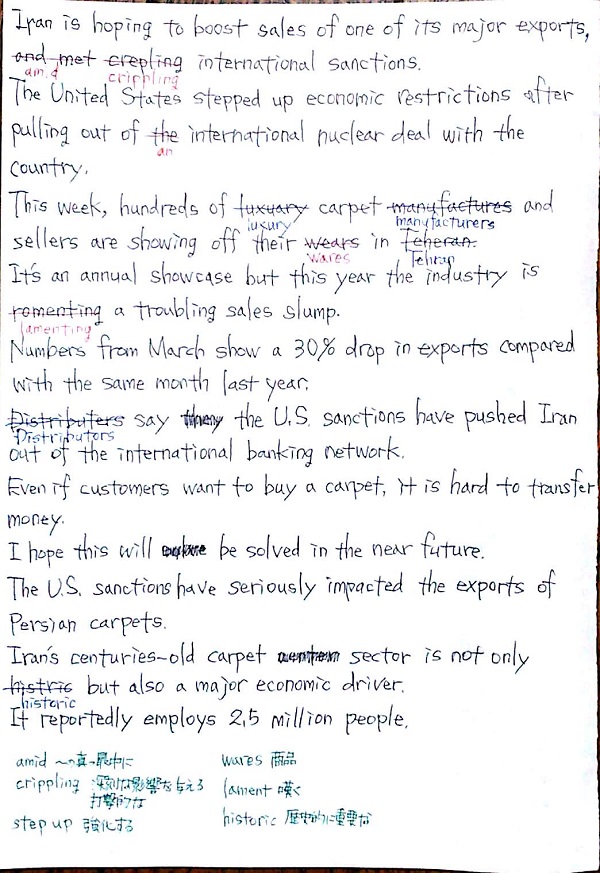 Iran is hoping to boost sales of one of its major exports,
and met crepling international sanctions.
amid crippling
The United States stepped up economic restrictions after
pulling out of the international nuclear deal with the
an
country.
This week, hundreds of luxuary carpet manufactures and
luxury manufacturers
sellers are showing off their wears in Teheran.
wares Tehran
It's an annual showcase but this year the industry is
romenting a troubling sales slump.
lamenting
Numbers from March show a 30% drop in exports compared
with the same month last year.
Distributers say the U.S. sanctions have pushed Iran
Distributors
out of the international banking network.
Even if customers want to buy a carpet, it is hard to transfer
money.
I hope this will be solved in the near future.
The U.S. sanctions have seriously impacted the exports of
Persian carpets.
Iran's centuries-old carpet sector is not only
histric but also a major economic driver.
historic
It reportedly employs 2.5 million people.
amid ～の真っ最中に wares 商品
crippling 深刻な影響を与える lament 嘆く
打撃的な
step up 強化する historic 歴史的に重要な